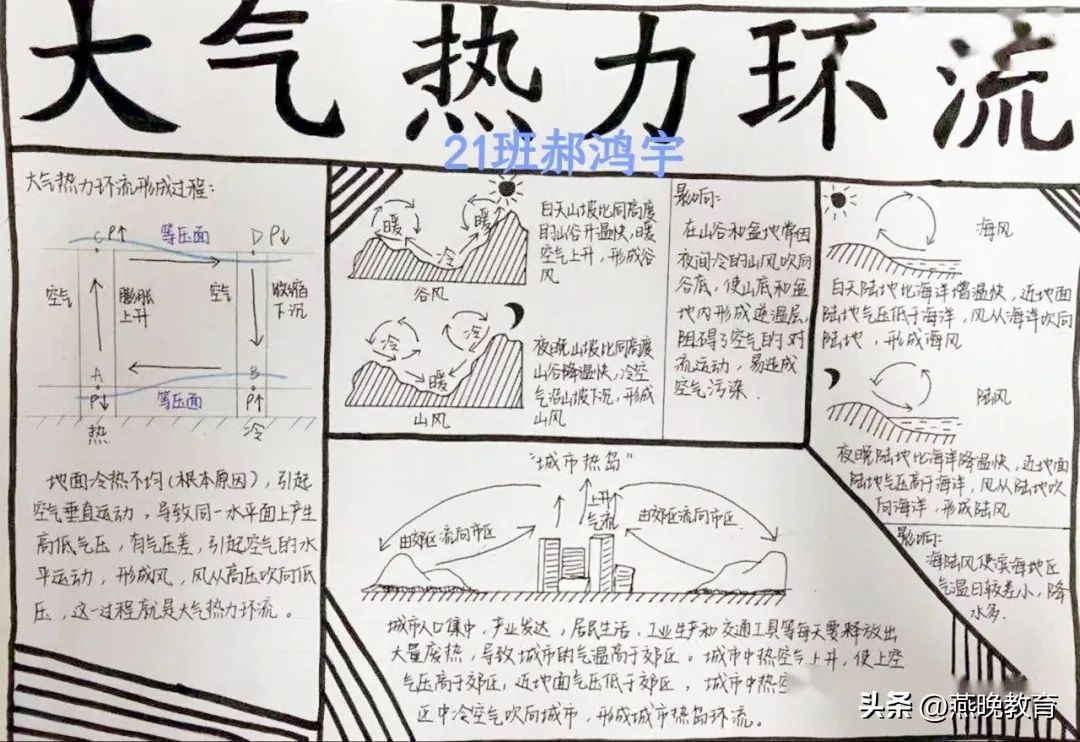 大气热力环流
21班郝鸿宇
大气热力环流形成过程:
C P↑ 等压面 D P↓
空气 膨胀上升 空气 收缩下沉
A B
P↓ 等压面 P↑
热 冷
地面冷热不均(根本原因),引起
空气垂直运动,导致同一水平面上产生
高低气压,有气压差,引起空气的水
平运动,形成风,风从高压吹向低
压,这一过程就是大气热力环流。
暖 暖
冷
谷风
白天山坡比同高度
的山谷升温快,暖
空气上升,形成谷
风
冷 冷
暖
山风
夜晚山坡比同高度
山谷降温快,冷空
气沿山坡下沉,形成
山风
影响:
在山谷和盆地常因
夜间冷的山风吹向
谷底,使山底和盆
地内形成逆温层,
阻碍了空气的对
流运动,易造成
空气污染.
海风
白天陆地比海洋增温快,近地面
陆地气压低于海洋,风从海洋吹向
陆地,形成海风
陆风
夜晚陆地比海洋降温快,近地面
陆地气压高于海洋,风从陆地吹
向海洋,形成陆风
影响:
海陆风使滨海地区
气温日较差小,降
水多.
“城市热岛”
上升
气流
由郊区流向市区 由郊区流向市区
城市人口集中,产业发达,居民生活、工业生产和交通工具等每天要释放出
大量废热,导致城市的气温高于郊区。城市中热空气上升,使上空
气压高于郊区,近地面气压低于郊区,城市中热空
区中冷空气吹向城市,形成城市热岛环流。
头条 @燕晚教育